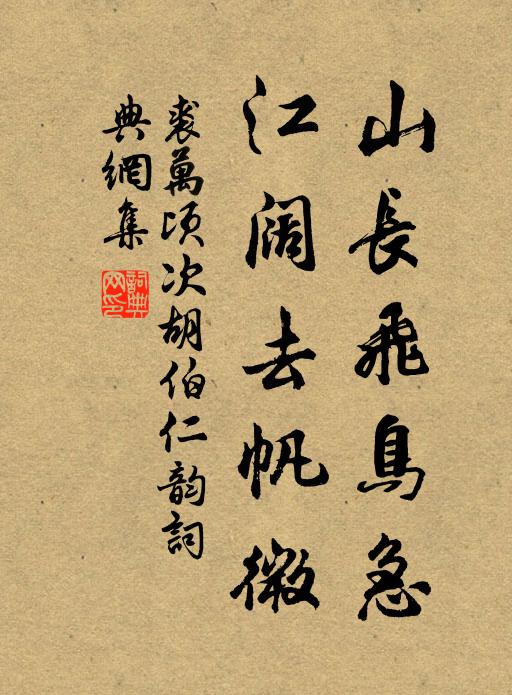 山長飛鳥急
江阔去帆微
裘萬頃次胡伯仁韵詞
典網集
詞典網印